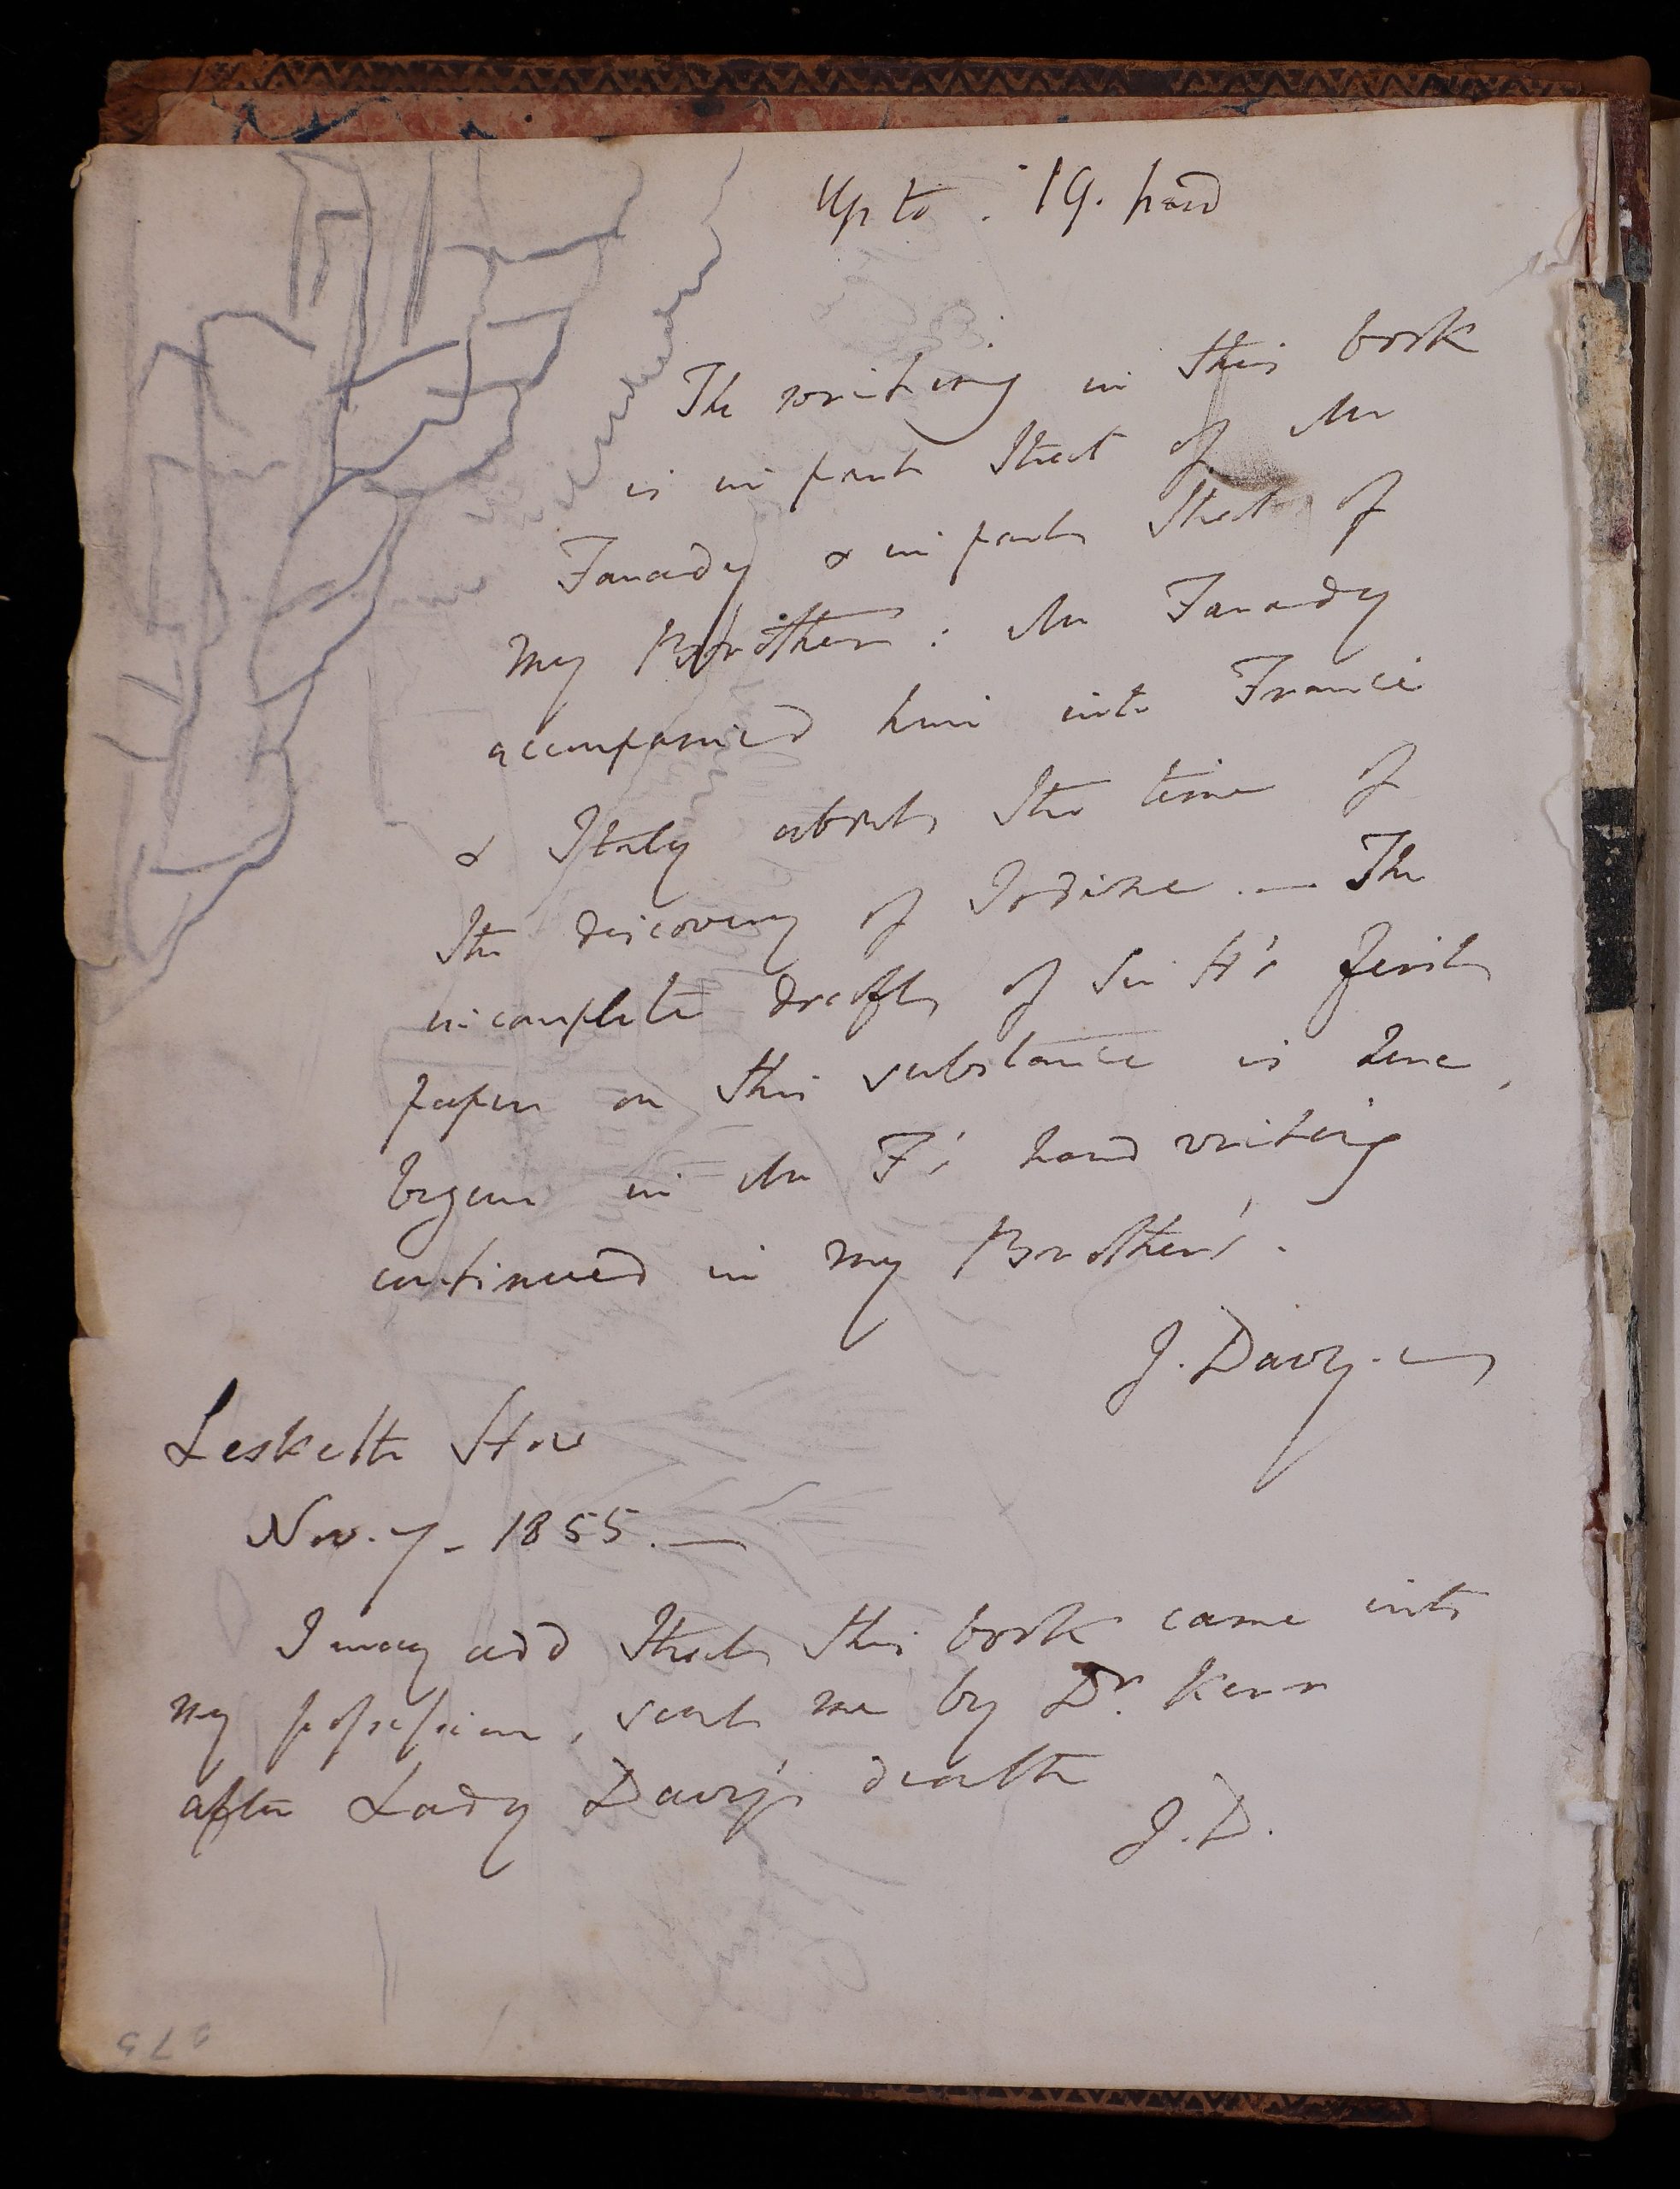 Up to . 19. paid
The writing in this book
is in part that of Mr
Faraday & in part that of
my Brother: Mr Faraday
accompanied him into France
& Italy about the time of
the discovery of Iodine. — The
incomplete draft of Sir H's first
paper on this substance is here,
begun in Mr F's hand writing
continued in my Brother's.
J. Davy. —
Lesketh How
Nov. 7 - 1855. —
I may add that this book came into
my possession, sent me by Dr. Kerr
after Lady Davy's death
J.D.